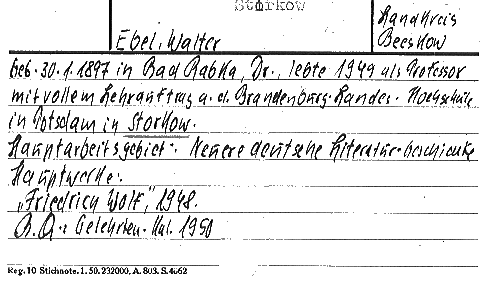 Storkow
Landkreis
Beeskow
Ebel, Walter
Geb. 30.1.1897 in Bad Rabka, Dr., lebte 1949 als Professor
mit vollem Lehrauftrag a. d. Brandenburg. Landes-Hochschule
in Potsdam in Storkow.
Hauptarbeitsgebiet: Neuere deutsche Literatur-Geschichte
Hauptwerke:
„Friedrich Wolf", 1948.
B.Q.: Gelehrten-Kal. 1950
Reg. 10 Stichnote. 1. 50. 232000, A. 803. S. 4662